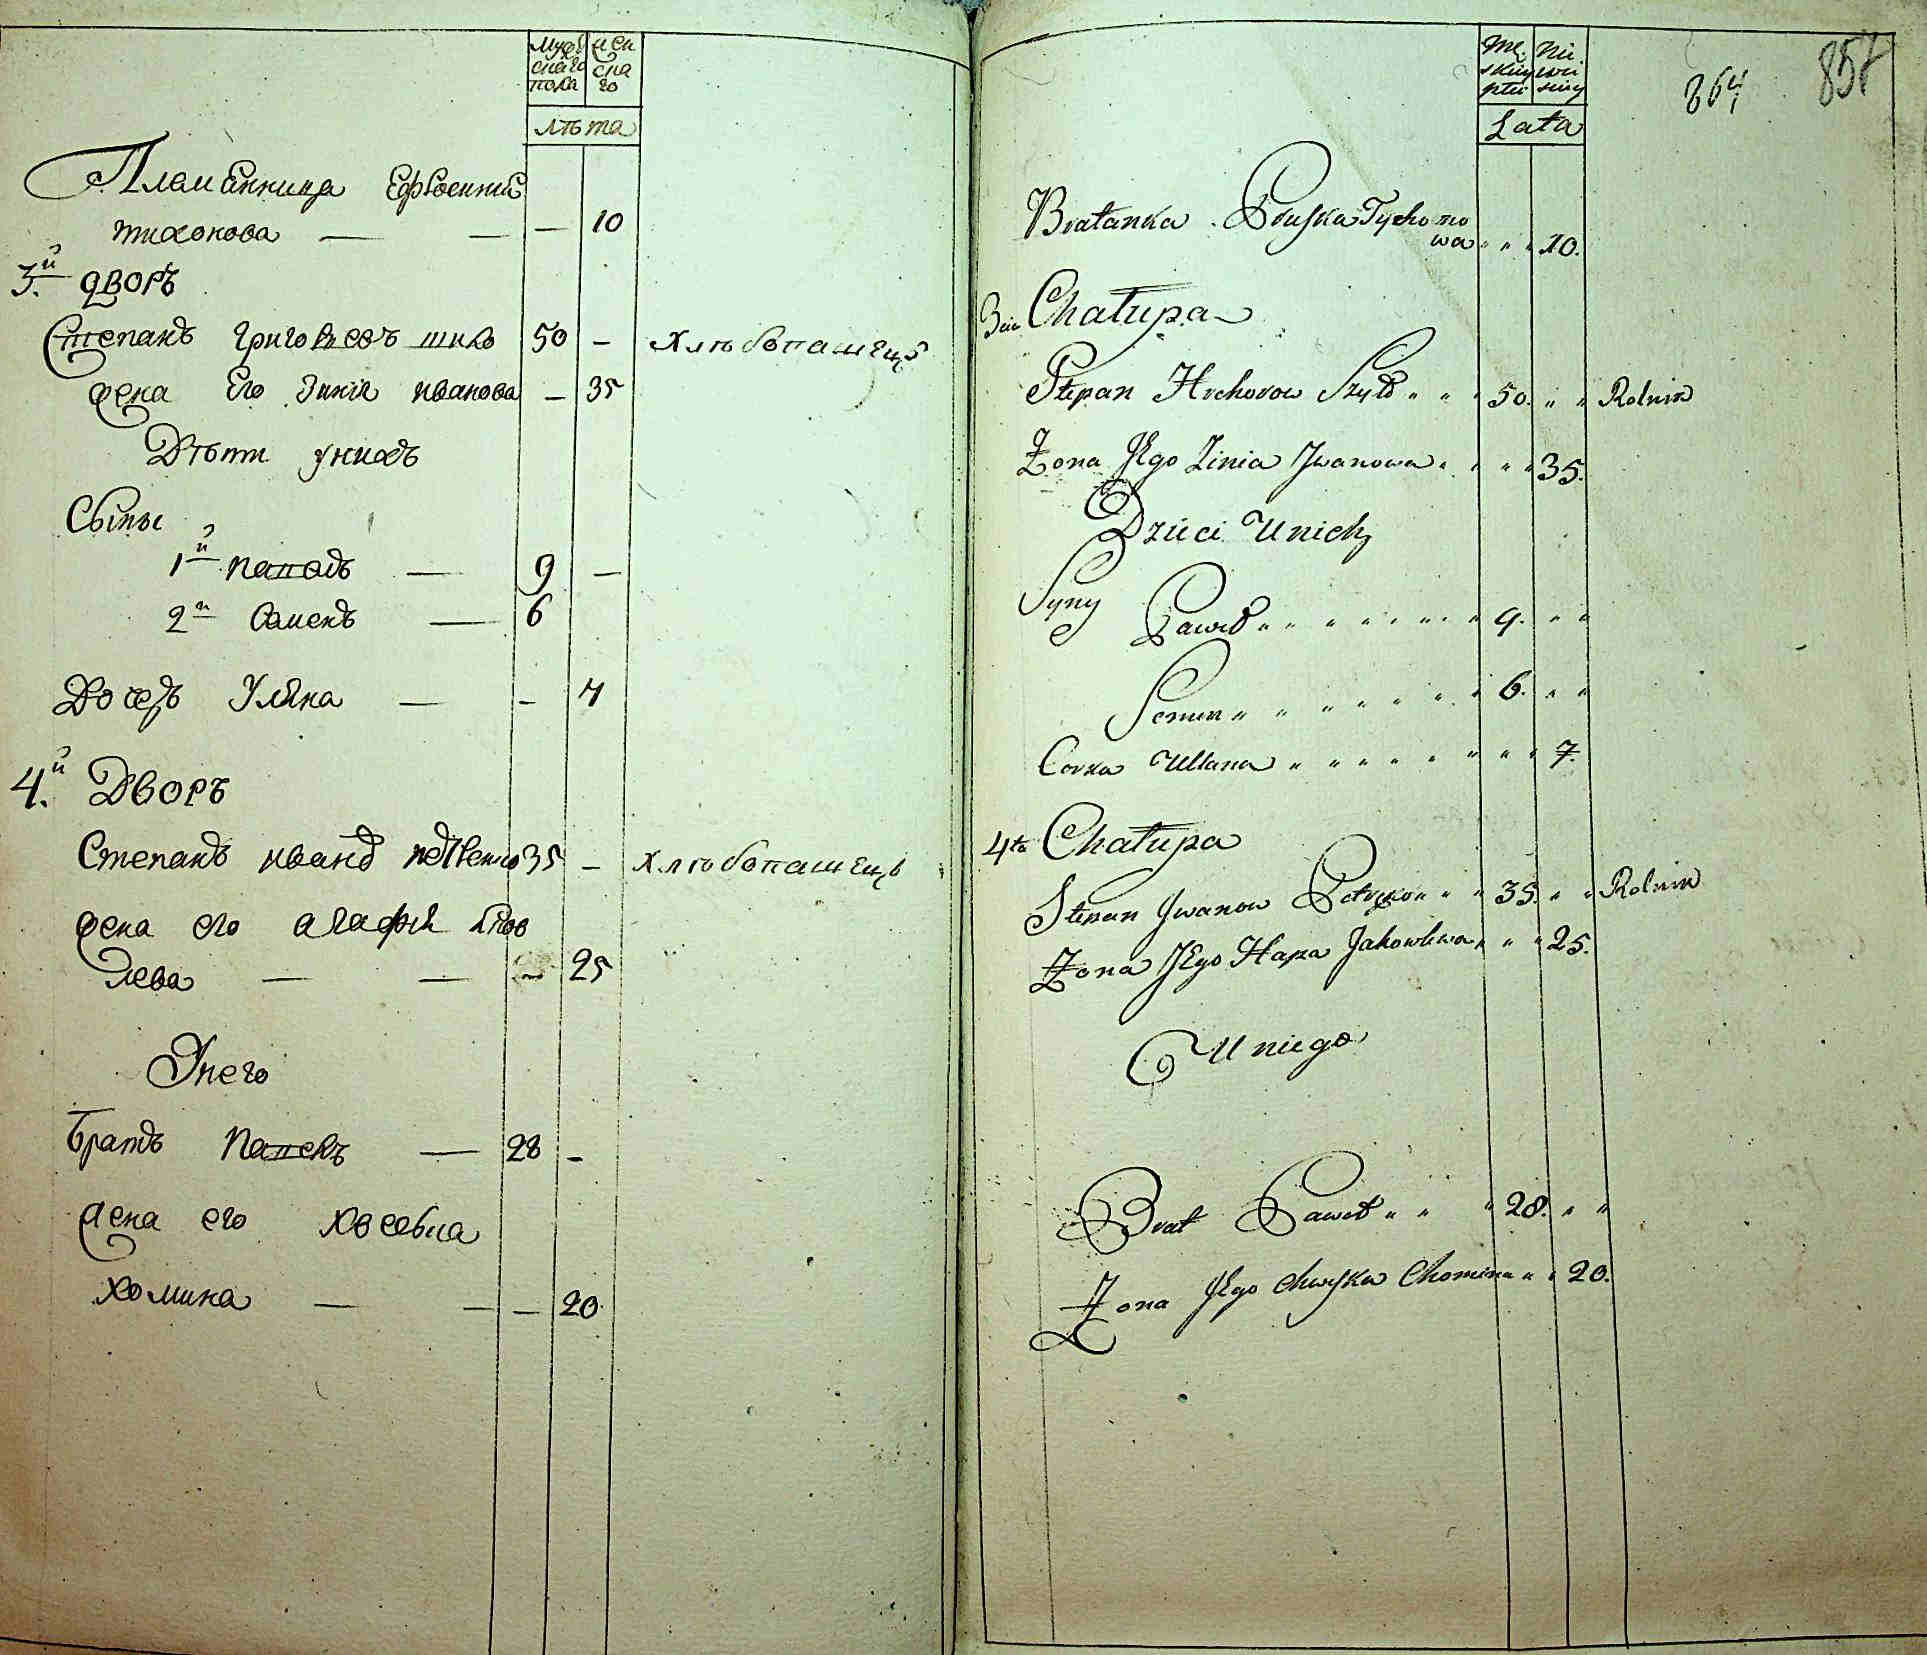 Мужескаго пола
женскаго
лѣта
Племѣнница Ефросинїѧ
тихонова — — — 10
3.й дворъ
Степанъ григорьевъ шило 50 — хлѣбопашецъ
жена Его Зинїѧ иванова — 35
Дѣти унихъ
Сыны
1й павелъ — 9 —
2й Семенъ — 6
Дочеръ Улѧна — — 7
4.й Дворъ
Степанъ иванъ петренко 35 — хлѣбопашецъ
жена его агафїѧ ѧков
лева — — — 25
Унего
Братъ павелъ — 28 —
жена его ховевна
хомина — — — 20
męskiey płci
niewieśсiey
Lata
264
857
Bratanka Pruska Tychono
wa " " 10.
3cia Chałupa
Stepan Hrehorow Szyło " " " 50. " " Rolnik
Żona Jego Zinia Jwanowa " " " " 35.
Dzieci Unich
Syny Paweł " " " " " " " " 9. " "
Semen " " " " " " " 6. " "
Corka Ullana " " " " " " " " " 7.
4ta Chałupa
Stepan Jwanow Petryko " " " 35. " " Rolnik
Żona Jego Hapa Jakowlewa " " " 25.
U niego
Brat Paweł " " " 28. " "
Żona Jego Chwiska Chomina " " 20.